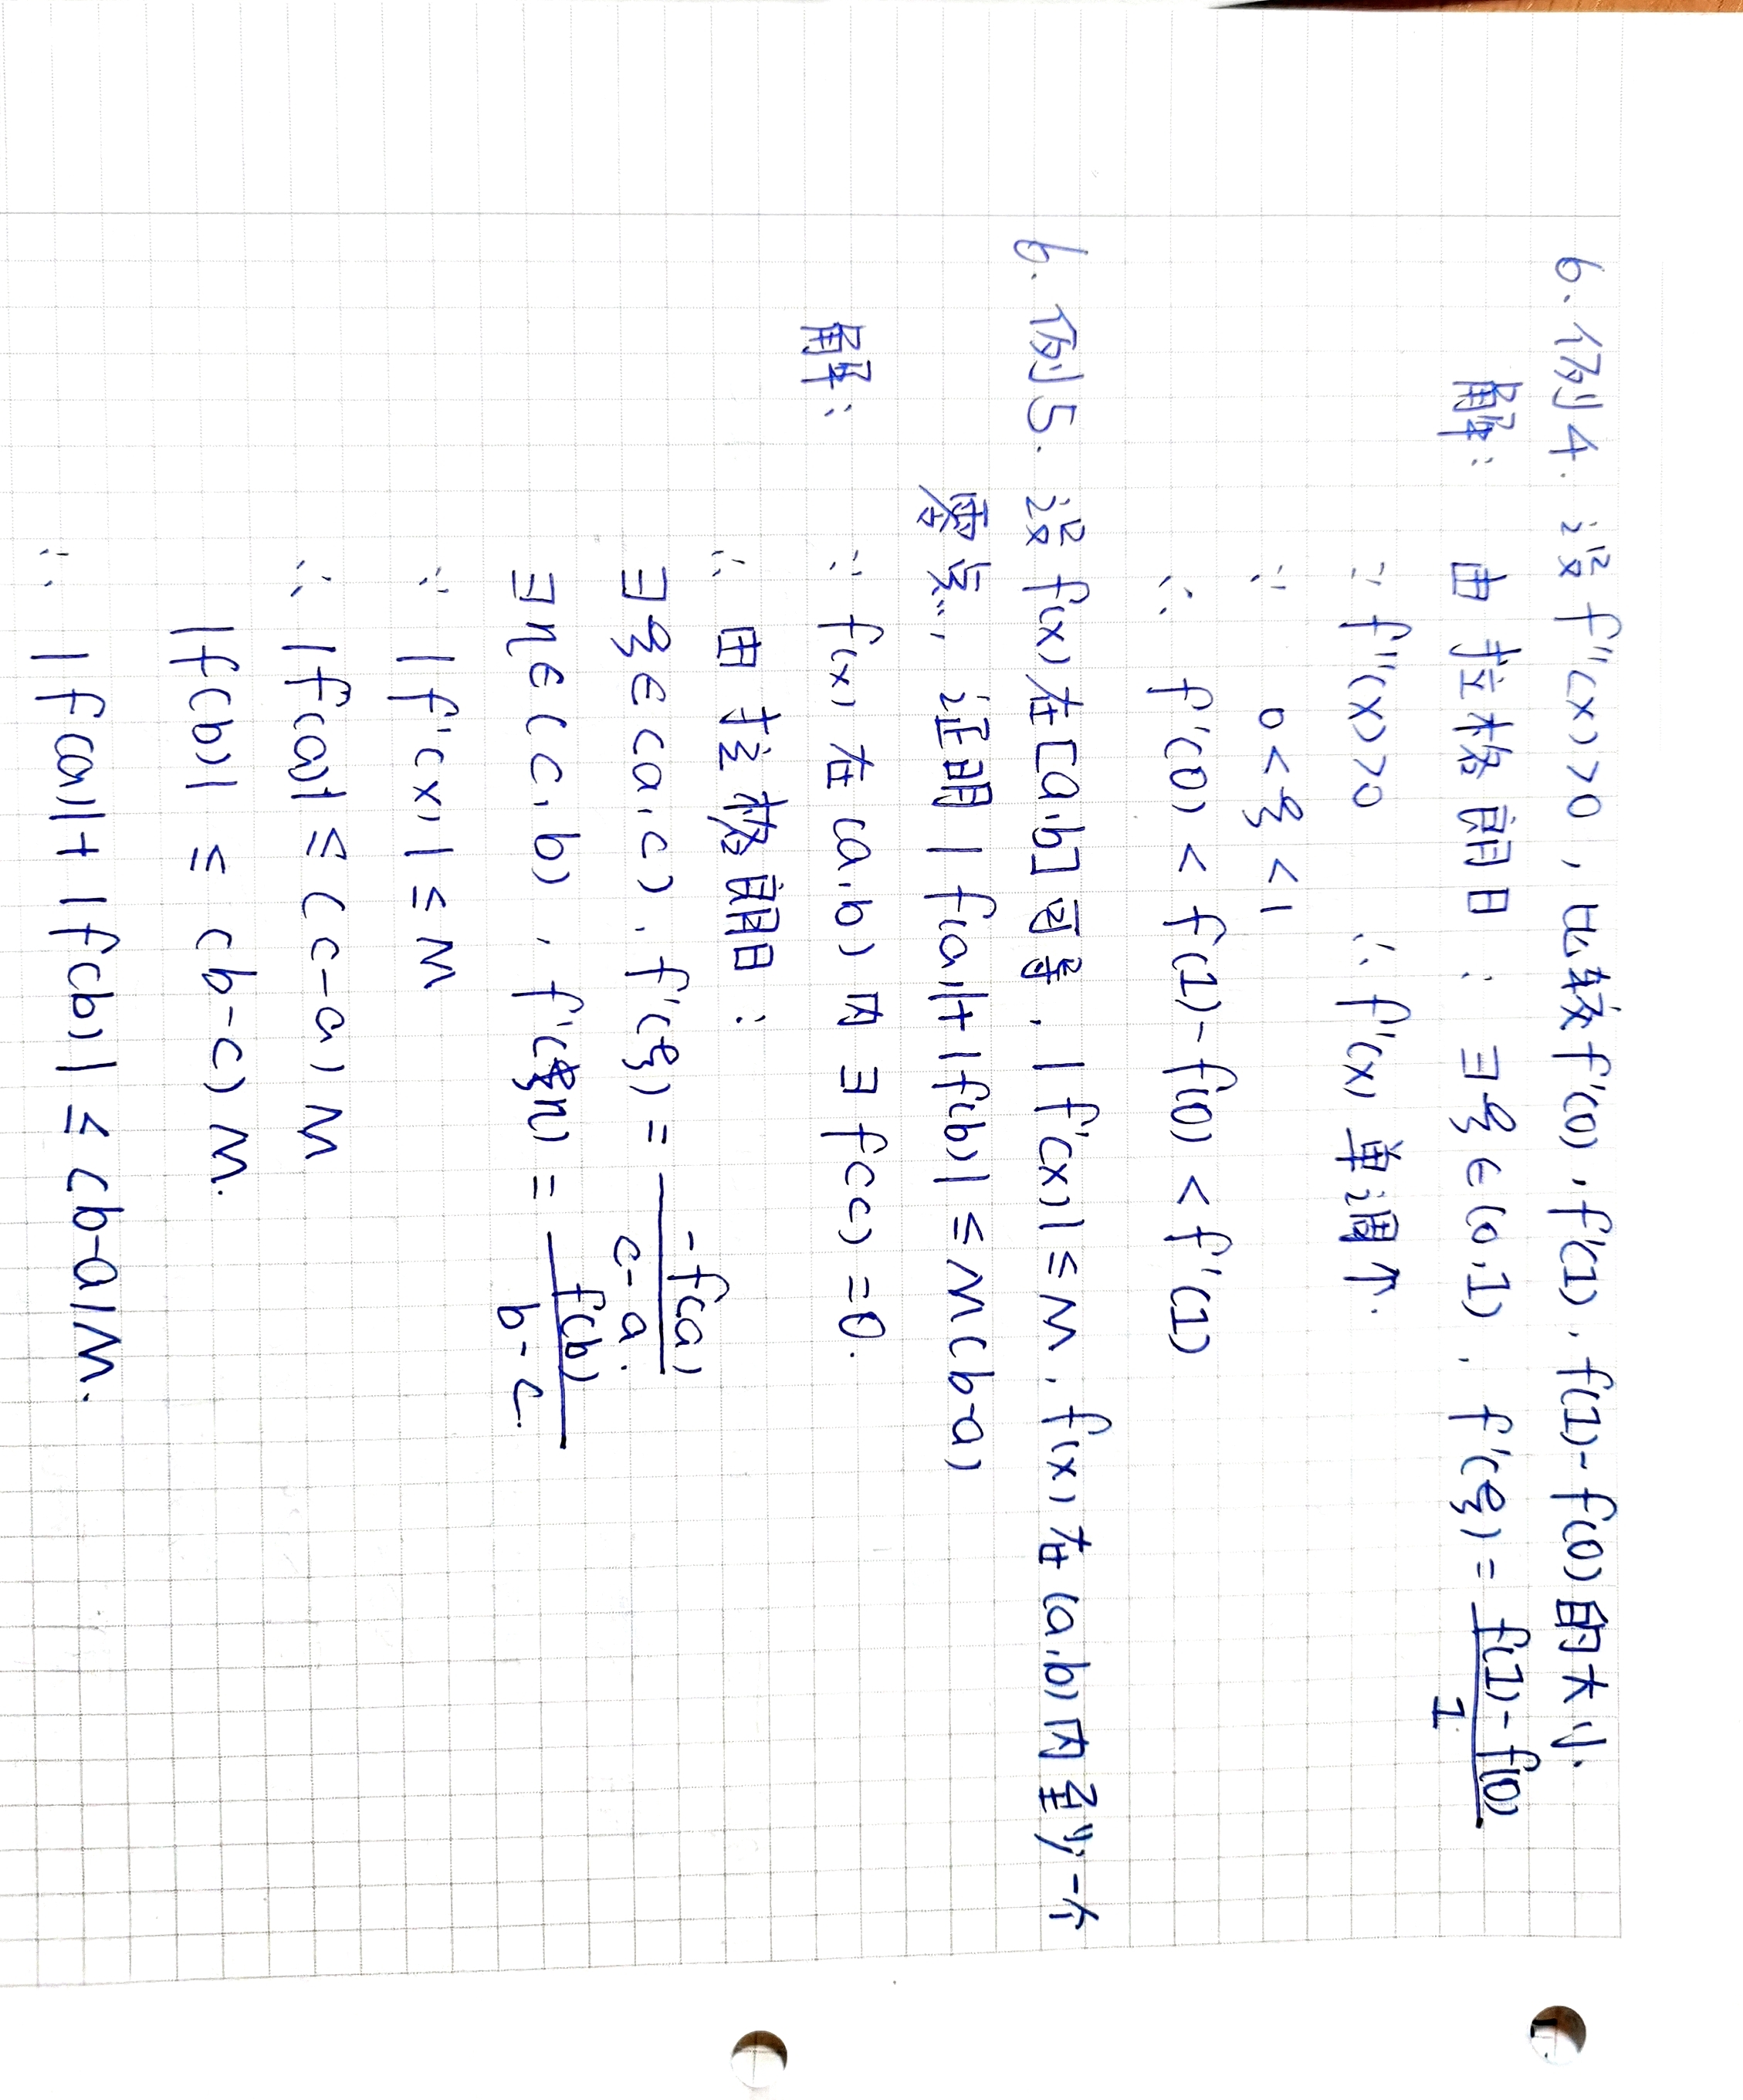 6. 例4. 设 f''(x)>0, 比较 f'(0), f'(1), f(1)-f(0) 的大小.
解: 由拉格朗日: ∃ξ∈(0,1), f'(ξ) = \frac{f(1)-f(0)}{1}
∵ f''(x)>0 ∴ f'(x) 单调↑.
∵ 0<ξ<1
∴ f'(0) < f(1)-f(0) < f'(1)
6. 例5. 设 f(x) 在[a,b]可导, |f'(x)|≤M, f(x) 在(a,b)内至少一个
零点, 证明 |f(a)|+|f(b)| ≤ M(b-a)
解: ∵ f(x) 在(a,b)内 ∃ f(c)=0.
∴ 由拉格朗日:
∃ξ∈(a,c), f'(ξ) = \frac{-f(a)}{c-a}.
∃η∈(c,b), f'(η) = \frac{f(b)}{b-c}.
∵ |f'(x)| ≤ M
∴ |f(a)| ≤ (c-a) M
|f(b)| ≤ (b-c) M.
∴ |f(a)|+|f(b)| ≤ (b-a)M.